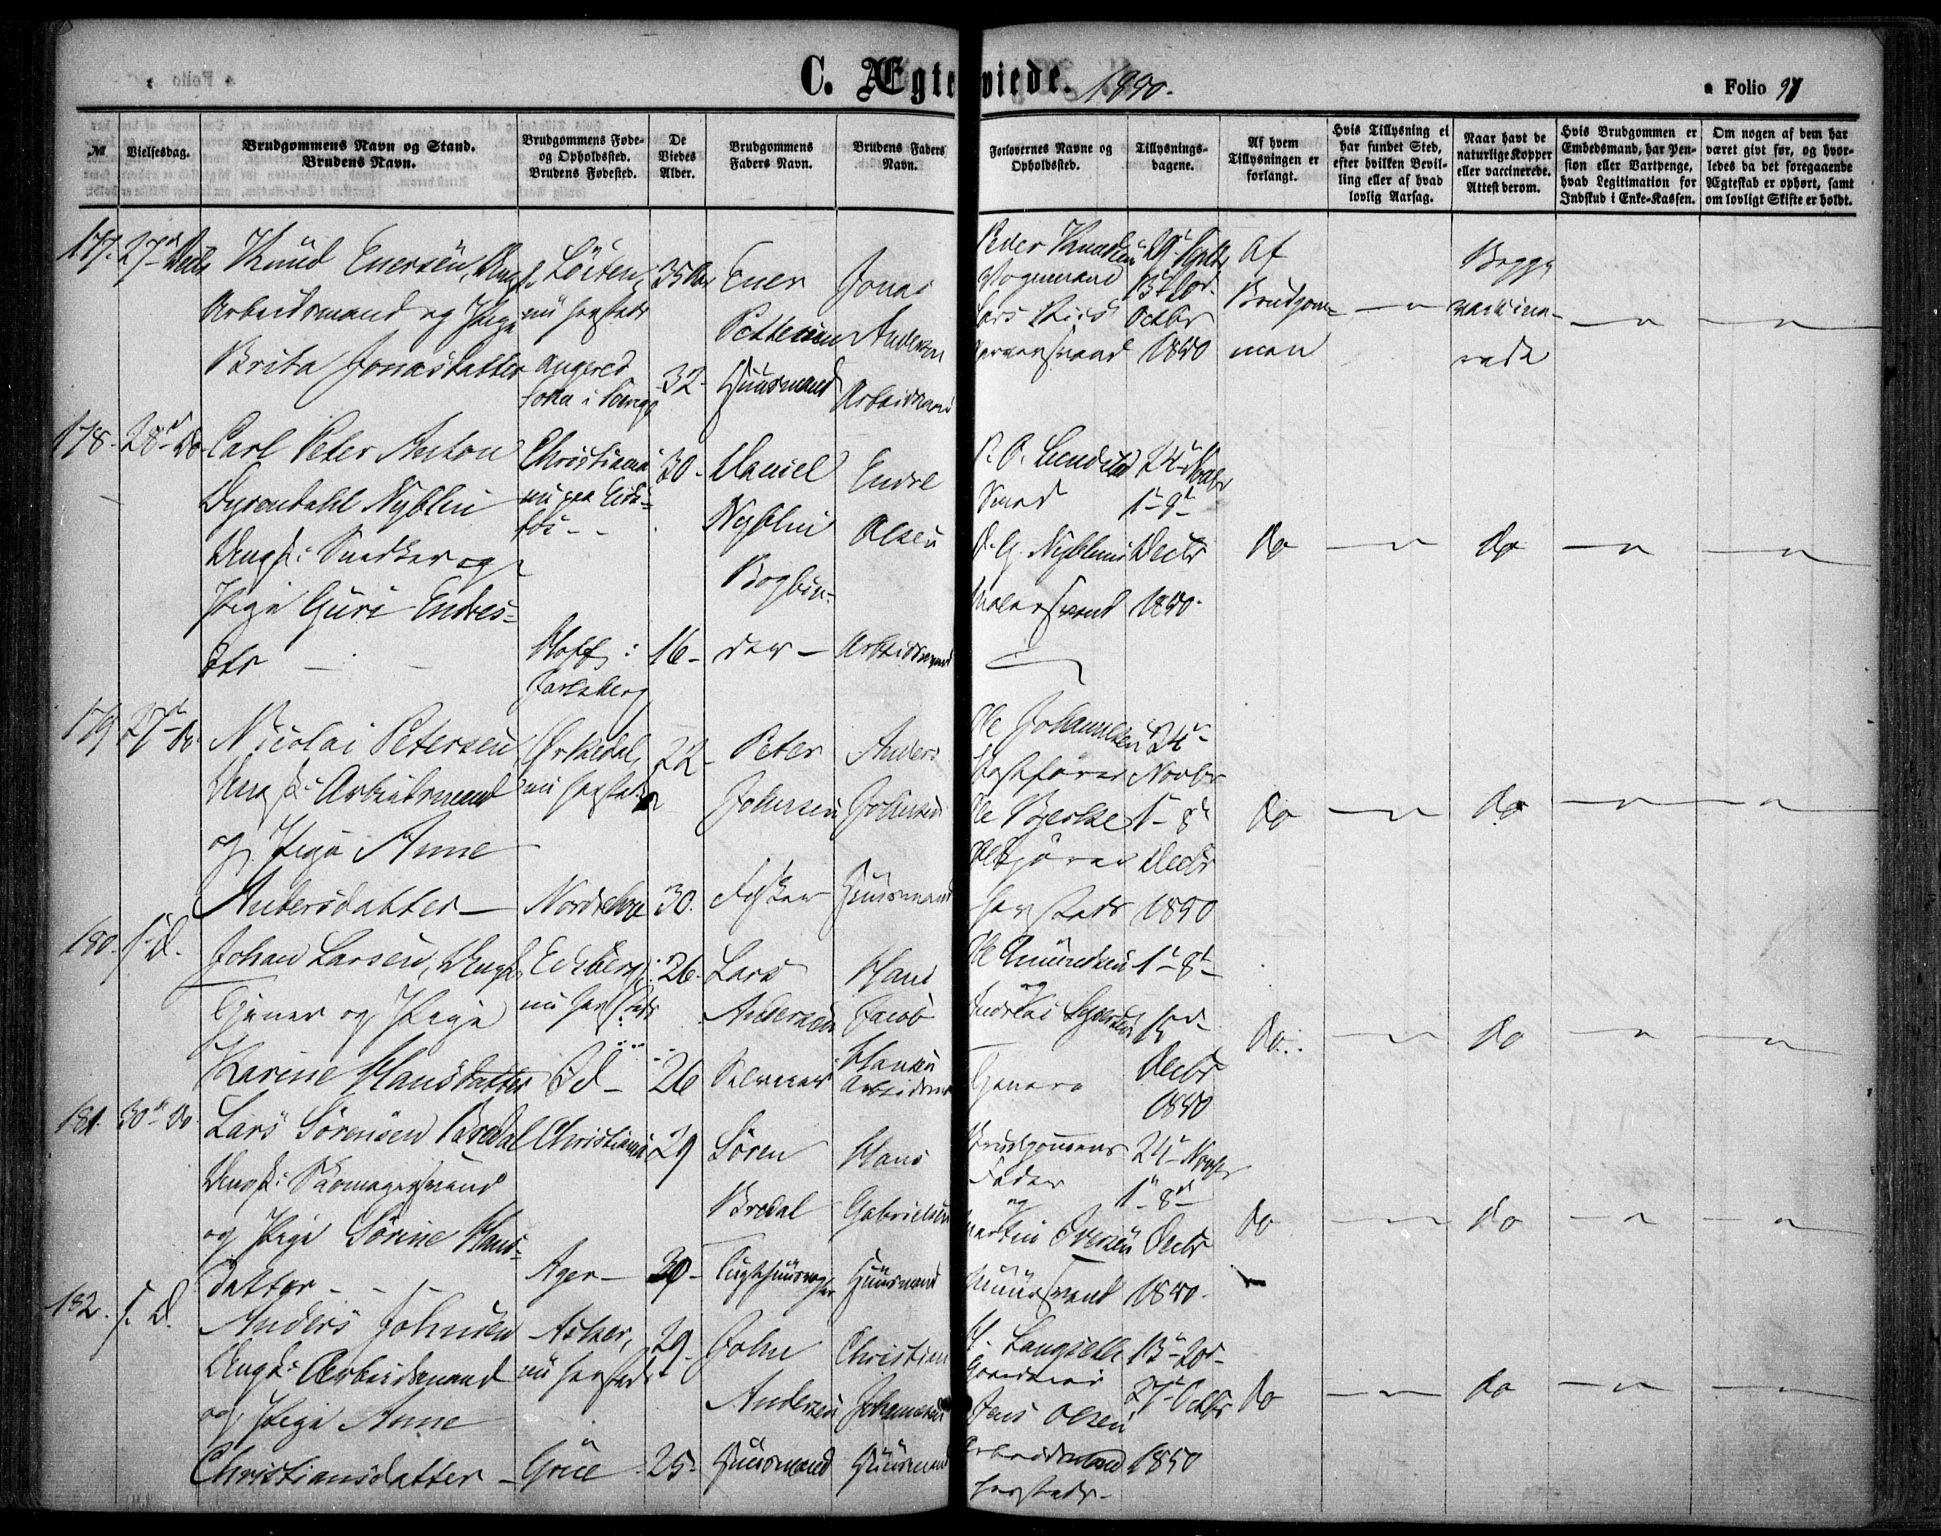 C. Ægteviede. 1850.
a Folio 97
№
Vielsesdag.
Brudgommens Navn og Stand.
Brudens Navn.
Brudgommens Føde-
og Opholdssted.
Brudens Fødested.
De
Viedes
Alder.
Brudgommens
Faders Navn.
Brudens Faders
Navn.
Forlovernes Navne og
Opholdssted.
Tillysnings-
dagene.
Af hvem
Tillysningen er
forlangt.
Hvis Tillysning ei
har fundet Sted,
efter hvilken Bevil-
ling eller af hvad
lovlig Aarsag.
Naar havt de
naturlige Kopper
eller vaccinerede.
Attest derom.
Hvis Brudgommen er
Embedsmand, har Pen-
sion eller Vartpenge,
hvad Legitimation for
Indskud i Enke-Kassen.
Om nogen af dem har
været givt før, og hvor-
ledes da det foregaaende
Ægteskab er ophørt, samt
om lovligt Skifte er holdt.
177. 27
Knud Enersen, Ungk.
Arbeidsmand og Pige
Brita Jonasdatter
Löiten,
nu hersteds
Angered
35
32-
Ener
Pettersen
Huusmand
Jonas
Andersen
Arbeidsmand
Peder Knudsen
Vognmand
29 Septbr
13 20
Octbr
1850
Af
Brudgom-
men
Begge
vaccine-
rede
178. 28 do
Carl Peter Anton
Dyrendahl Nyblin
Ungk: Snedker og
Pige Guri Endres-
dtr
Christiania
nu paa Eids-
Hoff i
Jarlsberg
30-
16-
Daniel
Nyblin
Bogbin-
der -
Endre
Olsen
Arbeidsmand
P. O. Lundsted
Smed
D. G. Nyblin
Malersvend
24 Novbr
1- 8-
Decbr
1850.
do
do
179 27 do
Nicolai Petersen
Ungk: Arbeidsmand
og Pige Anne
Andersdatter
Ørkedal,
nu hersteds
Nordrehov
22-
30.
Peter
Johnsen
Fisker
Anders
Johnsen
Huusmand
Ole Johannesen
Ole Bjerke
hersteds
24-
Novbr
1- 8
Decbr
1850
do
do
180. s. D.
Johan Larsen, Ungk,
Tjener og Pige
Karine Hansdatter
Edsberg,
nu hersteds
Id-
26-
26
Lars
Andersen
Hans
Jacob
Hansen
Arbeidsmd
Ole Amundsen
og
Tjenere
1- 8-
15
Decbr
1850
do
do
181. 30 do
Lars Sörensen Bredal
Ungk: Skomagersvend
og Pige Sörine Hans-
datter
Christiania
Ager-
29
30-
Sören
Bredal
Hans
Gabrielsen
Huusmand
Brudgommens
Fader
og
Martin Iversen
Muursvend
24- Novbr
1- 8-
Decbr
1850.
do
do
182. s. D.
Anders Johnsen
Ungk: Arbeidsmand
og Pige Anne
Christiansdatter
Asker,
nu hersteds
Grue
29-
25-
John
Andersen
Huusmand
Christian
Johannesen
Huusmand
H. Langseth
Jens Olsen
Arbeidsmand
hersteds-
13- 20-
27- Octbr
1850
do
do